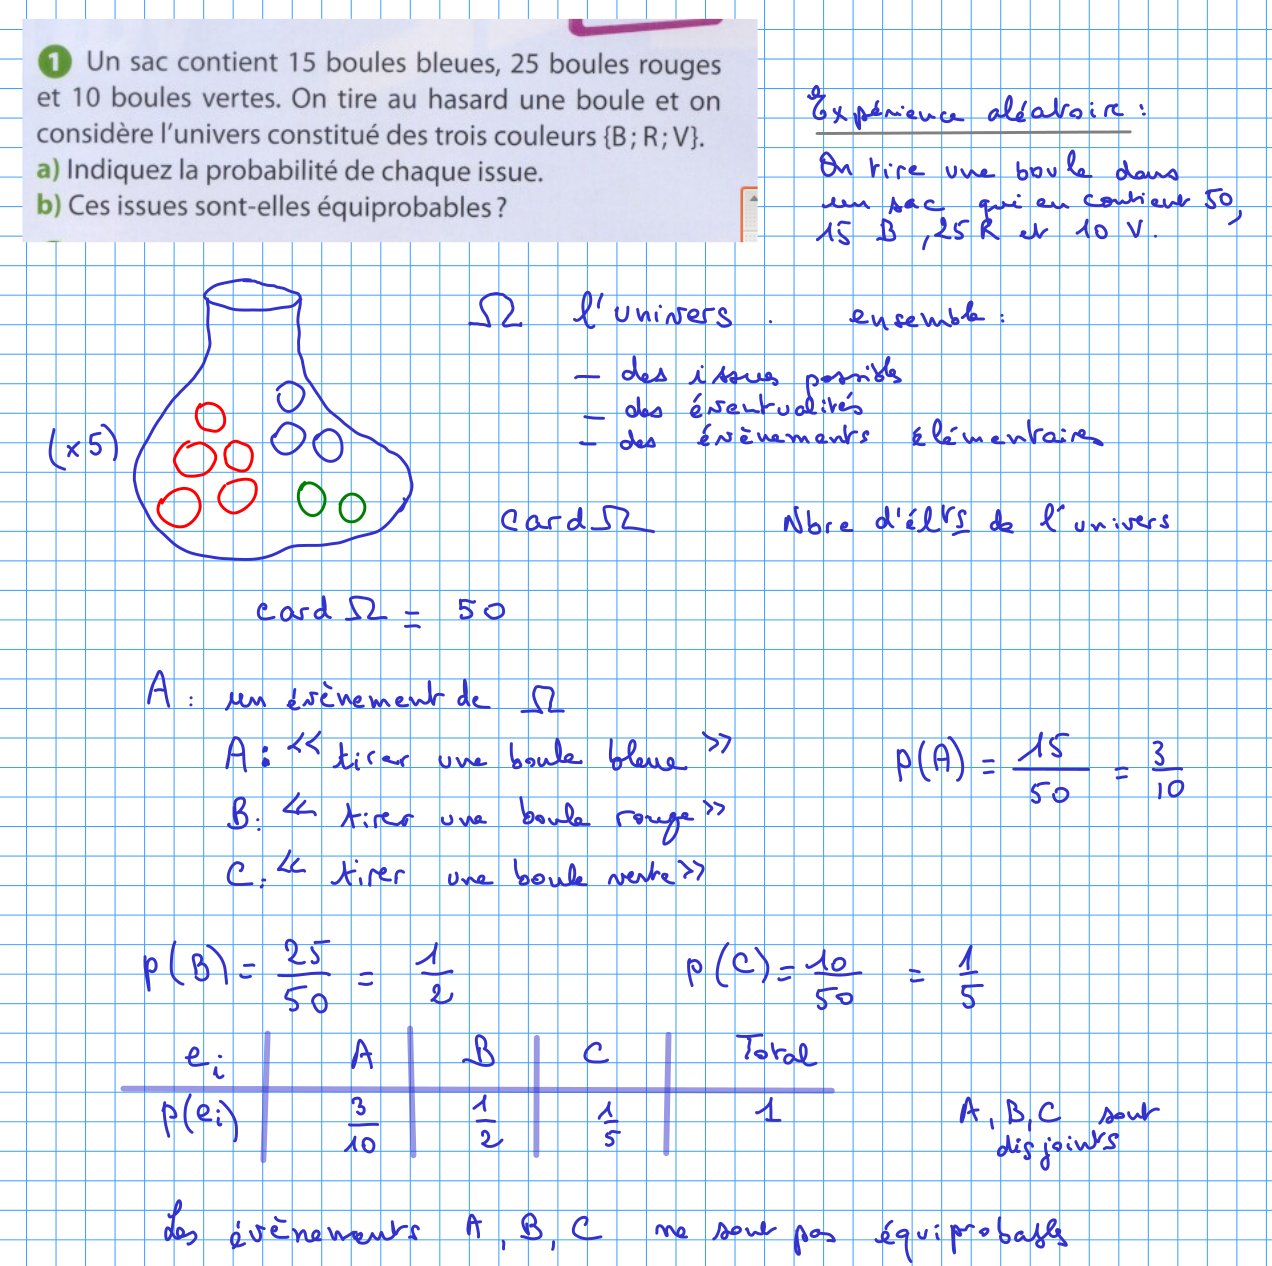 1 Un sac contient 15 boules bleues, 25 boules rouges
et 10 boules vertes. On tire au hasard une boule et on
considère l'univers constitué des trois couleurs {B ; R ; V}.
a) Indiquez la probabilité de chaque issue.
b) Ces issues sont-elles équiprobables ?
Expérience aléatoire :
On tire une boule dans
un sac qui en contient 50,
15 B , 25 R et 10 V .
Ω l'univers . ensemble :
– des issues possibles
– des éventualités
– des évènements élémentaires
(x5)
card Ω Nbre d'élts de l'univers
card Ω = 50
A : un évènement de Ω
A : « tirer une boule bleue » p(A) = 15/50 = 3/10
B : « tirer une boule rouge »
C : « tirer une boule verte »
p(B) = 25/50 = 1/2 p(C) = 10/50 = 1/5
ei A B C Total
p(ei) 3/10 1/2 1/5 1
A, B, C sont
disjoints
Les évènements A, B, C ne sont pas équiprobables